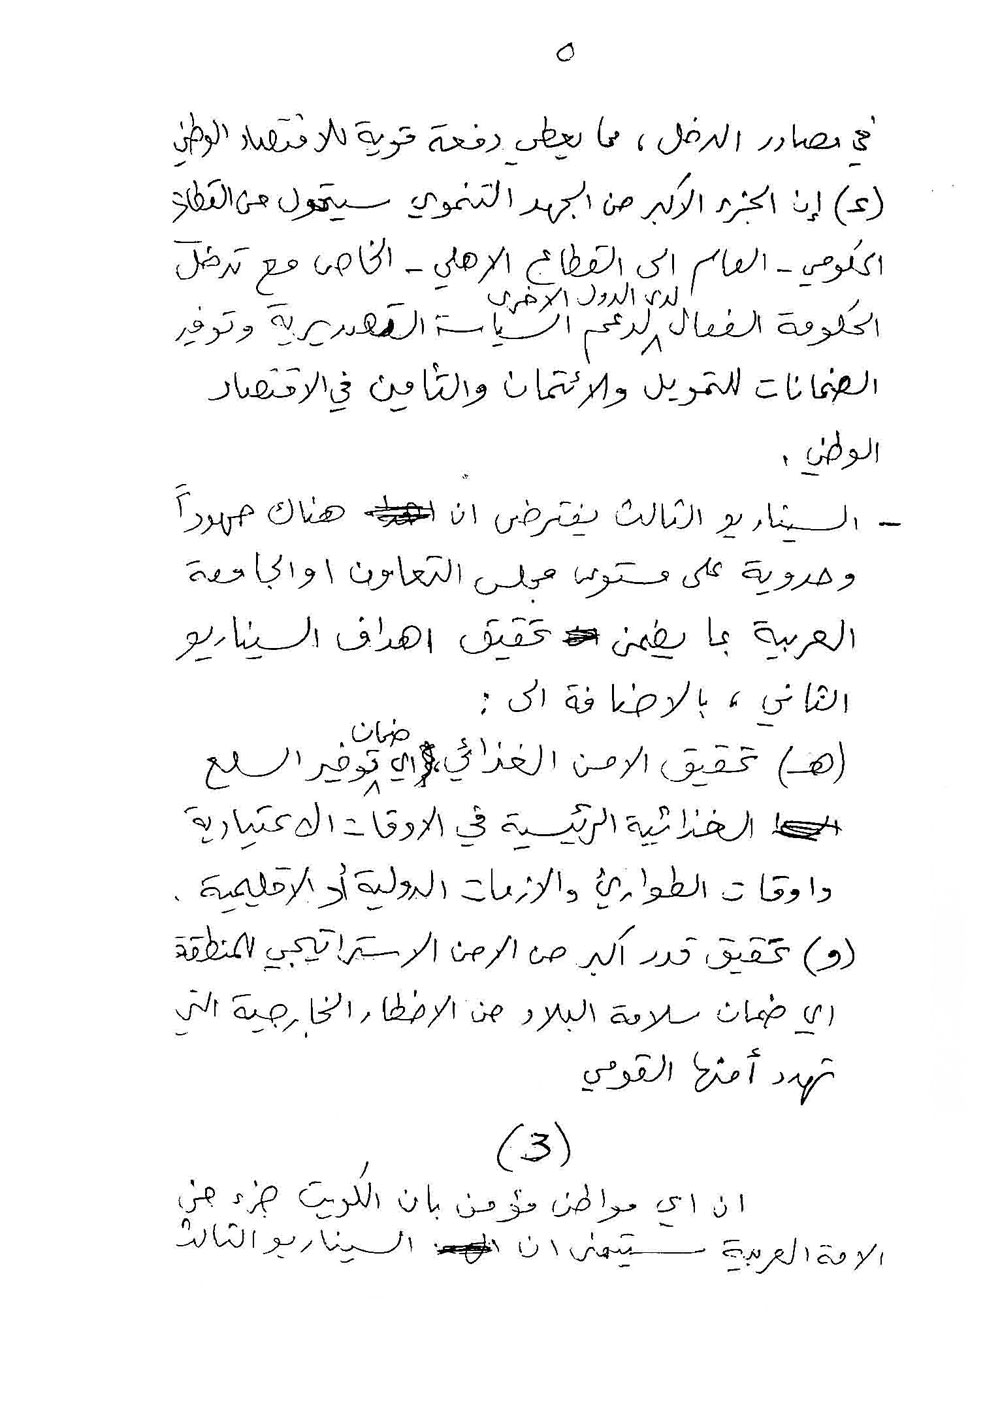 ٥
في مصادر الدخل ، مما يعطي دفعة قوية للاقتصاد الوطني
(د) إن الجزء الأكبر من الجهد التنموي سيتحول من القطاع
الحكومي - العام الى القطاع الاهلي - الخاص مع تدخل
لدى الدول الاخرى
الحكومة الفعال لدعم السياسة التصديرية وتوفير
الضمانات للتمويل والائتمان والتأمين في الاقتصاد
الوطني .
- السيناريو الثالث يفترض ان هناك جهوداً
وحدوية على مستوى مجلس التعاون او الجامعة
العربية بما يضمن تحقيق اهداف السيناريو
الثاني ، بالاضافة الى :
ضمان
(هـ) تحقيق الامن الغذائي ، اي توفير السلع
الغذائية الرئيسية في الاوقات الاعتيادية
واوقات الطوارئ والازمات الدولية أو الاقليمية .
(و) تحقيق قدر اكبر من الامن الاستراتيجي للمنطقة
اي ضمان سلامة البلاد من الاخطار الخارجية التي
تهدد أمنها القومي
(3)
ان اي مواطن مؤمن بان الكويت جزء من
الامة العربية سيتمنى ان السيناريو الثالث